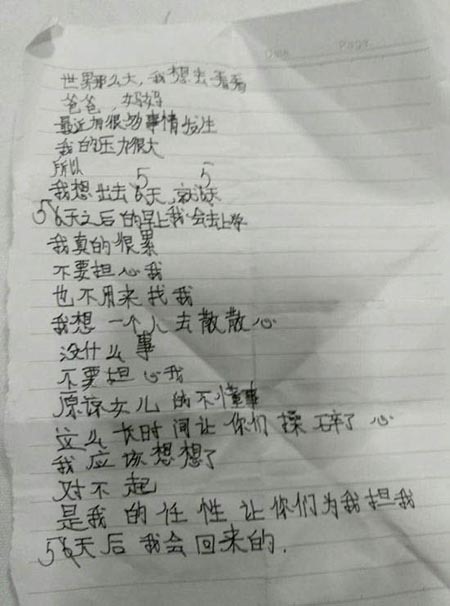 Date Page
世界那么大，我想去看看
爸爸，妈妈
最近有很多事情发生
我的压力很大
所以
我想出去5天，就5天
5天之后的早上我会去上学
我真的很累
不要担心我
也不用来找我
我想一个人去散散心
没什么事
不要担心我
原谅女儿的不懂事
这么长时间让你们操碎了心
我应该想想了
对不起
是我的任性让你们为我担我
5天后我会回来的.